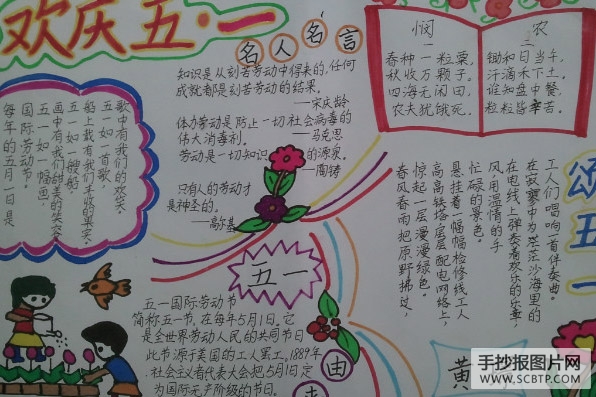 欢庆五·一
名人名言
知识是从刻苦劳动中得来的,任何
成就都是刻苦劳动的结果。
——宋庆龄
体力劳动是防止一切社会病毒的
伟大消毒剂。
——马克思
劳动是一切知识的源泉。
——陶铸
只有人的劳动才
是神圣的。
——高尔基
悯农
春种一粒粟,
秋收万颗子。
四海无闲田,
农夫犹饿死。
二
锄和日当午,
汗滴禾下土。
谁知盘中餐
粒粒皆辛苦。
每年的五月一日是
国际劳动节。
五一如一幅画,
画中有我们甜美的笑容;
五一如一般船,
船上载有我们丰收的果实;
五一如一首歌,
歌中有我们的欢笑。
五一
五一国际劳动节
简称五一节,在每年5月1日。它
是全世界劳动人民的共同节日
此节源于美国的工人罢工,1889年
社会主义者代表大会把5月1日定
为国际无产阶级的节日。
由
颂五一
春风春雨把原野拂过,
惊起一层漫漫绿色。
高高铁塔层层配电网络上,
悬挂着一幅幅检修线工人
忙碌的景色。
风用温情的手
在电线上弹奏着欢乐的乐章,
在寂寥中为茫茫沙海里的
工人们唱响一首伴奏曲。
黄
手抄报图片网
WWW.SCBTP.COM